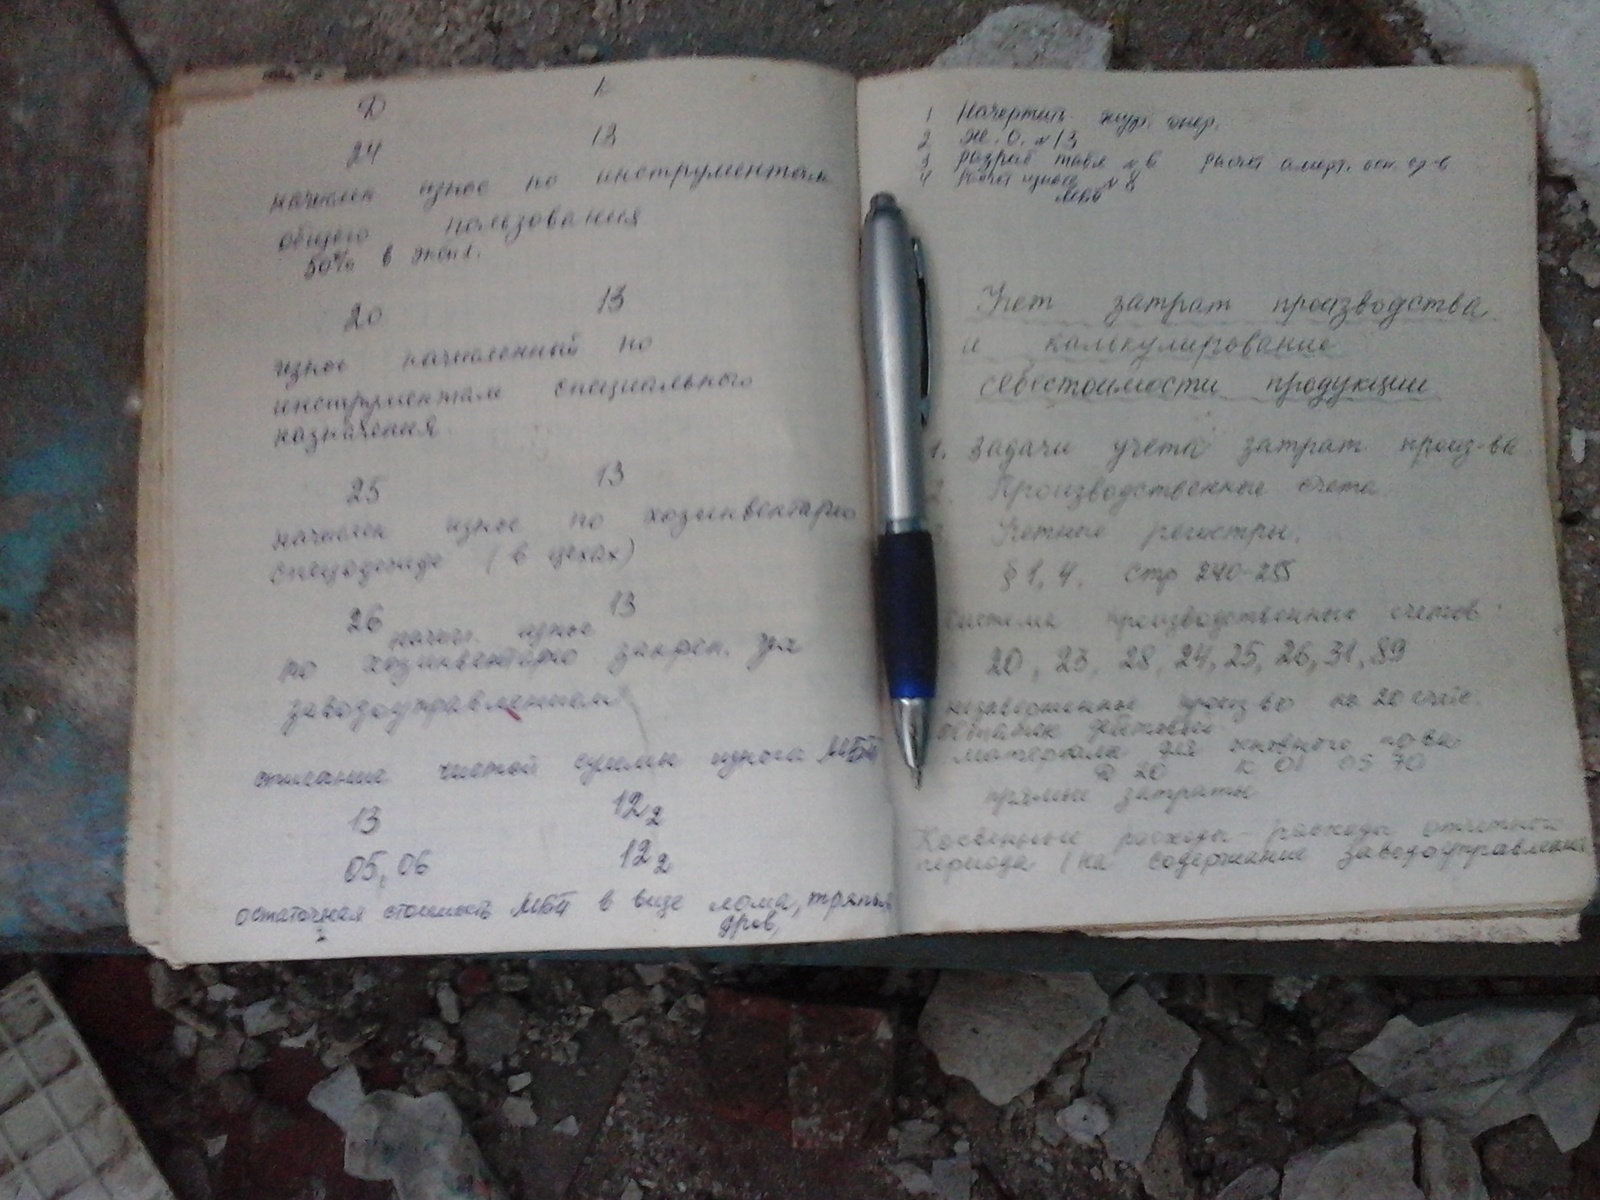 Д К
24 13
начислен износ по инструментам
общего пользования
50% в эксп.
20 13
износ начисленный по
инструментам специального
назначения
25 13
начислен износ по хозинвентарю
спецодежде (в цехах)
26 13
начисл. износ
по хозинвентарю закреп. за
заводоуправлением
списание чистой суммы износа МБП
13 12₂
05, 06 12₂
остаточная стоимость МБП в виде лома, тряпья
дров,
1 Начертить жур. опер.
2 Ж. О. №13
3 разраб табл №6 расчет аморт. осн. ср-в
4 расчет износа №8
МБП
Учет затрат производства
и калькулирование
себестоимости продукции
1. Задачи учета затрат произ-ва
2. Производственные счета.
Учетные регистры.
§ 1, 4. стр 240-255
система производственных счетов:
20, 23, 28, 24, 25, 26, 31, 89
незавершенное произво на 20 счете.
остаток
материала для основного по-ва
Д 20 К 01 05 70
прямые затраты
Косвенные расходы - расходы отчетного
периода (на содержание заводоуправления